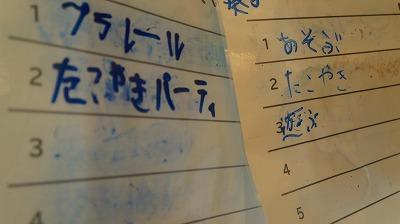 1 プラレール
2 たこやきパーティ
3
4
1 あそぶ
2 たこやき
3 遊ぶ
4
5